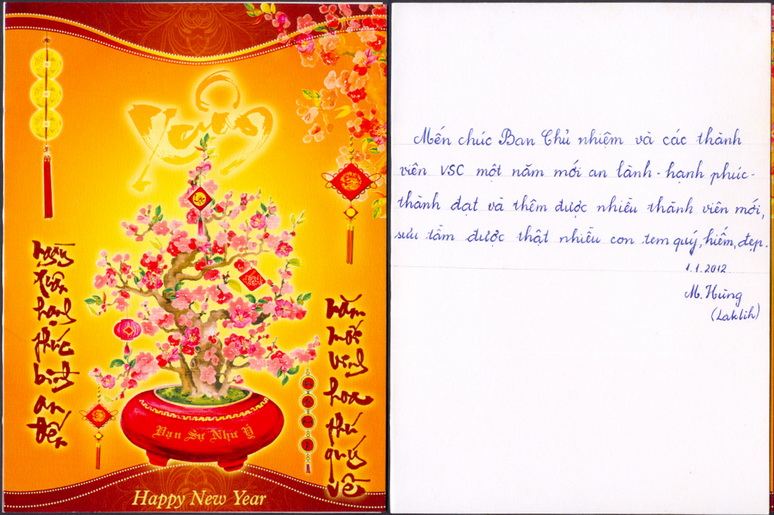 Xuân
Ngày
xuân
hạnh
phúc
bình
an
đến
Năm
mới
vinh
hoa
phú
quý
về
Vạn Sự Như Ý
Happy New Year
Mến chúc Ban Chủ nhiệm và các thành
viên VSC một năm mới an lành - hạnh phúc -
thành đạt và thêm được nhiều thành viên mới,
sưu tầm được thật nhiều con tem quý, hiếm, đẹp.
1.1.2012.
M. Hùng
(Laklih)